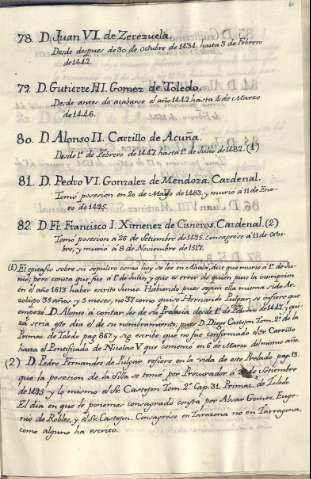 78. D. Juan VI. de Zerezuela.
Desde despues de 30 de octubre de 1434. hasta 3 de Febrero
de 1442.
79. D. Gutierre III. Gomez de Toledo.
Desde antes de acabarse el año 1442 hasta 4 de Marzo
de 1446.
80. D. Alonso II. Carrillo de Acuña.
Desde 1º de Febrero de 1447 hasta 1º de Julio de 1482. (1)
81. D. Pedro VI. Gonzalez de Mendoza. Cardenal.
Tomó posesion en 20 de de 1483, y murió a 11 de Ene-
ro de 1495.
82 D. Fr. Francisco I. Ximenez de Cisneros. Cardenal. (2)
Tomó posesion a 20 de Setiembre de 1495, consagróse a 11 de Octu-
bre, y murió a 8 de Noviembre de 1517.
(1) El epitafio sobre su sepulcro como hoy se lee en Alcalá, dice que murió a 1º de Ju-
nio; pero consta que fue a 1º de Julio, y que es error de quien puso la
en el año 1613 haber escrito Junio. Habiendo pues segun ella misma sido Ar-
zobispo 35 años y 5 meses, no 37 como quiso Hernando Pulgar, se infiere que
empezó D. Alonso á contar los de su Prelacía desde 1º de Febrero de 1447, y
sería este dia el de su nombramiento; pues D. Diego Castejon Tom. 2º de la
Primac. de Toledo pag. 867 escribe que no fue confirmado el Sr. Carrillo
hasta el Pontificado de Nicolas V que comenzó en 6 de Marzo del mismo año.
(2) D. Pedro Fernandez de Pulgar refiere en la vida de este Prelado pag. 13.
que la posesion de la Silla se tomó por Procurador á de Setiembre
de 1495 y lo mismo el Sr. Castejon Tom. 2º Cap. 31. Primac. de Toledo
El dia en que le ponemos consagrado consta por Alvar Gomez, Euge-
nio de Robles, y el Sr. Castejon. Consagróse en Tarazona no en Tarragona,
como alguno ha escrito.